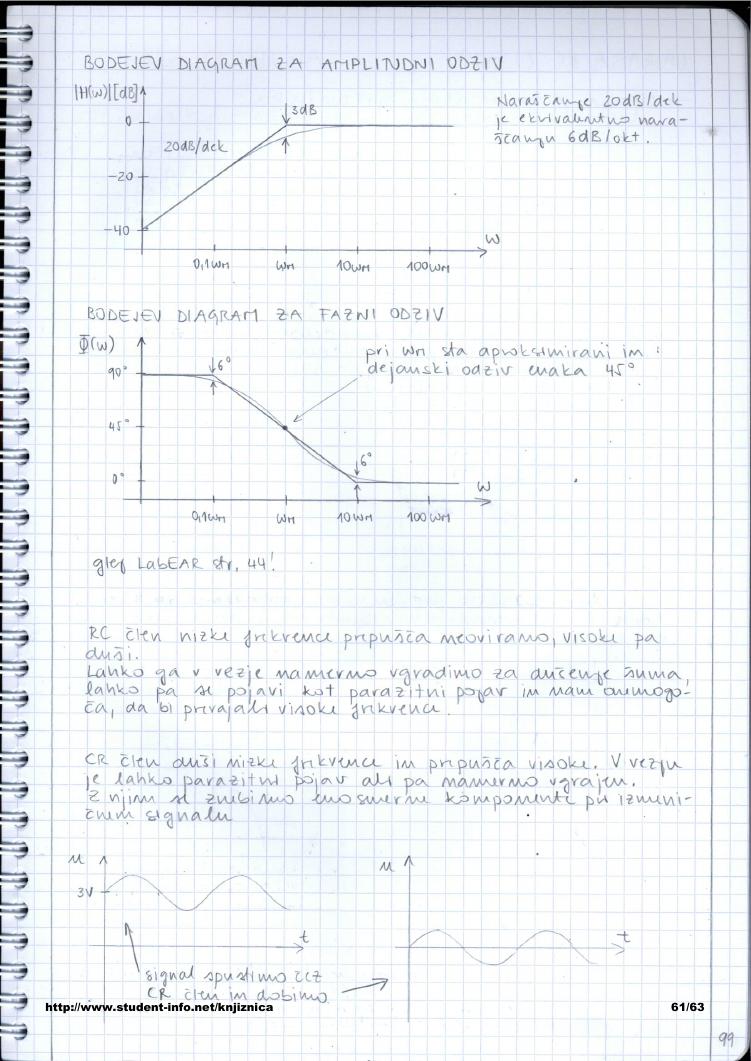 BODEJEV DIAGRAM ZA AMPLITUDNI ODZIV
|H(ω)|[dB]
3dB
0
20dB/dek
-20
-40
ω
0,1ωm ωm 10ωm 100ωm
Naraščanje 20dB/dek
je ekvivalentno nara-
ščanju 6dB/okt.
BODEJEV DIAGRAM ZA FAZNI ODZIV
Φ(ω)
6°
90°
45°
0°
6°
ω
0,1ωm ωm 10ωm 100ωm
pri ωm sta aproksimirani in
dejanski odziv enaka 45°
glej LabEAR str. 44!
RC člen nizke frekvence prepušča neovirano, visoke pa
duši.
Lahko ga v vezje namerno vgradimo za dušenje šuma,
lahko pa se pojavi kot parazitni pojav in nam onemogo-
ča, da bi prevajali visoke frekvence.
CR člen duši nizke frekvence in prepušča visoke. V vezju
je lahko parazitni pojav ali pa namerno vgrajen.
Z njim se znebimo enosmerne komponente pri izmeni-
čnem signalu
u
3V
t
signal spustimo čez
CR člen in dobimo
u
t
http://www.student-info.net/knjiznica
61/63
99